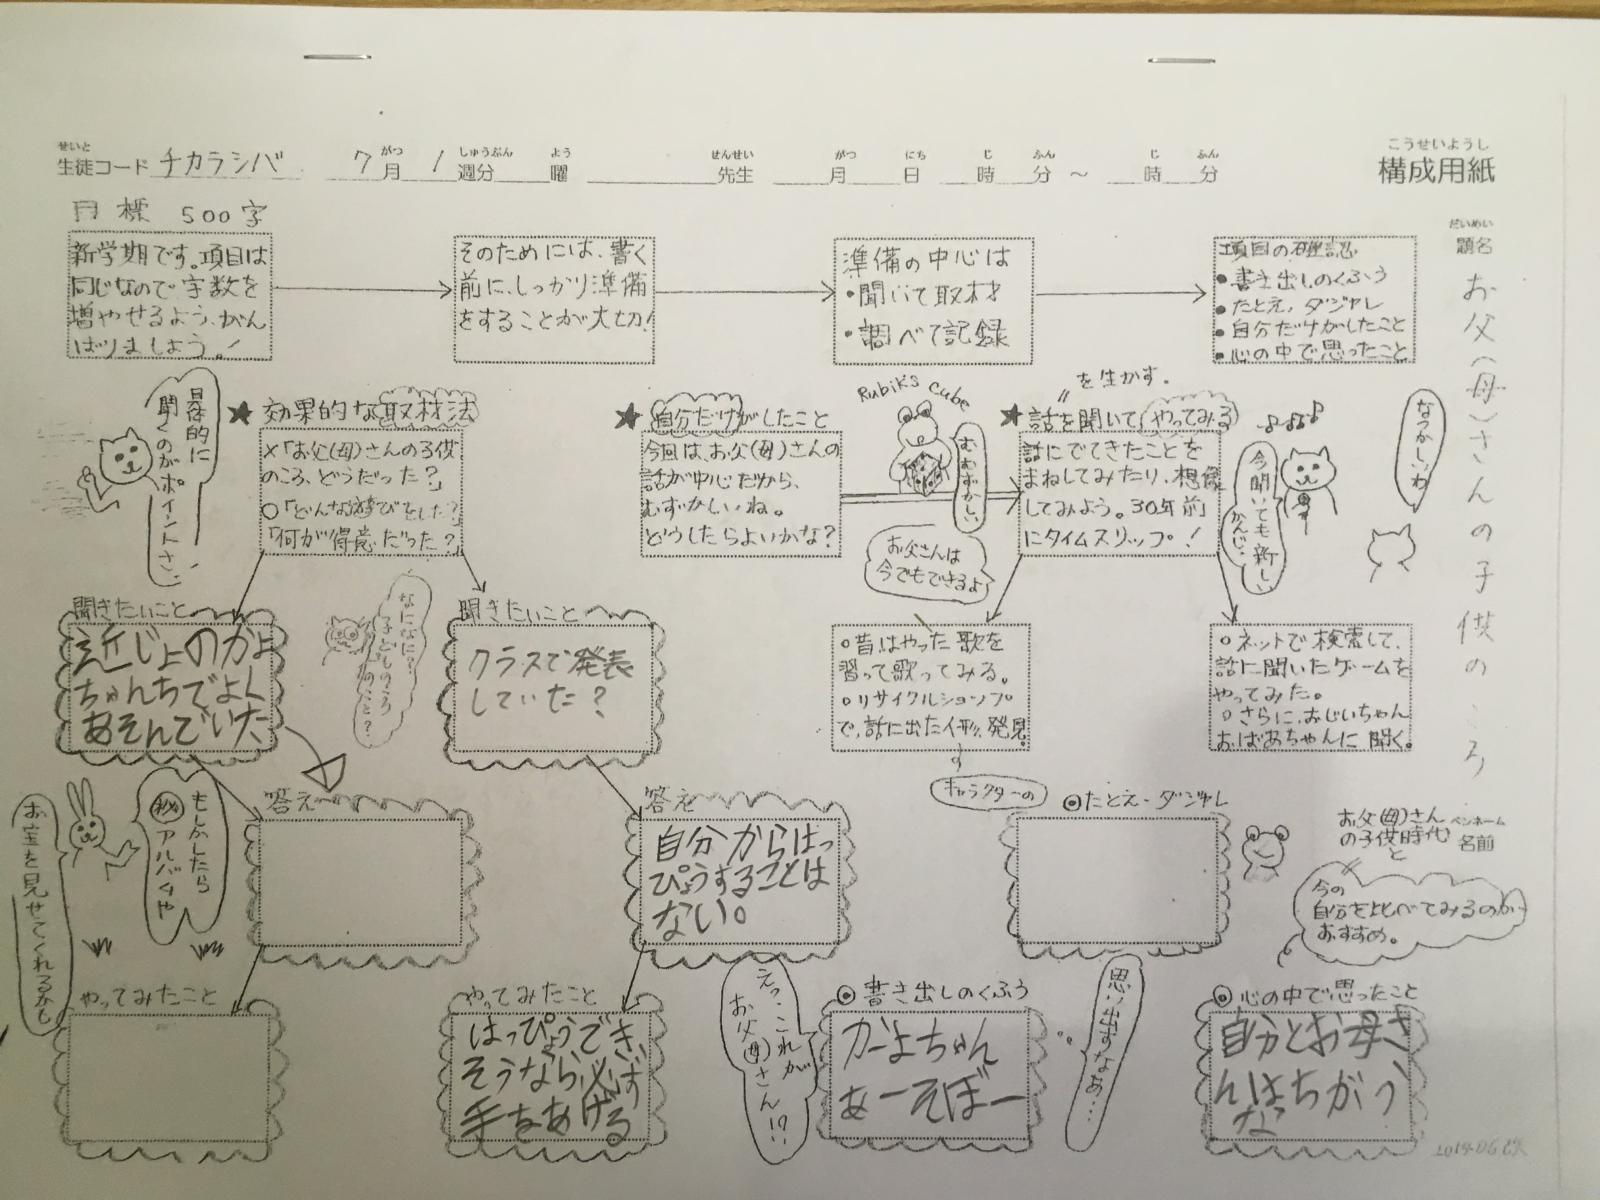 こうせいようし
構成用紙
せいと
生徒コード チカラシバ
がつ しゅうぶん よう
7月1週分 曜
せんせい
先生
がつ にち じ ふん じ ふん
月 日 時 分 ～ 時 分
だいめい
題名
お父(母)さんの子供のころ
目標 500字
新学期です。項目は
同じなので字数を
増やせるよう、がん
ばりましょう。!
そのためには、書く
前に、しっかり準備
をすることが大切!
準備の中心は
・聞いて取材
・調べて記録
項目の確認
・書き出しのくふう
・たとえ，ダジャレ
・自分だけがしたこと
・心の中で思ったこと
具体的に
聞くのがポイントさ、!
★ 効果的な取材法
×「お父(母)さんの子供
のころ、どうだった？」
○「どんな遊びをした？」
「何が得意だった？」
★ 自分だけがしたこと
今回は、お父(母)さんの
話が中心だから、
むずかしいね。
どうしたらよいかな？
Rubiks Cube
むむずかしい
お父さんは
今でもできるよ
を生かす。
★ 話を聞いてやってみる
話にでてきたことを
まねしてみたり、想像
してみよう。30年前
にタイムスリップ！
今聞いても新しい
かんじ、
なつかしいわ
聞きたいこと
近じょのかよ
ちゃんちでよく
あそんでいた
なになに？
子どものころ
のこと？
聞きたいこと
クラスで発表
していた？
○昔はやった歌を
習って歌ってみる。
○リサイクルショップ
で、話に出た人形、発見。
キャラクターの
○ネットで検索して、
話に聞いたゲームを
やってみた。
○さらに、おじいちゃん
おばあちゃんに聞く。
もしかしたら
㊙アルバムや
お宝を見せてくれるかも
答え
答え
自分からはっ
ぴょうすることは
ない。
◎たとえ・ダジャレ
ペンネーム
名前
お父(母)さん
の子供時代
と
今の
自分を比べてみるのが
おすすめ。
やってみたこと
やってみたこと
はっぴょうでき
そうなら必ず
手をあげる
えっ、これが
お父(母)さん!?
◎書き出しのくふう
かーよちゃん
あーそぼー
思い出すなあ…
◎心の中で思ったこと
自分とお母さ
んはちがう
な